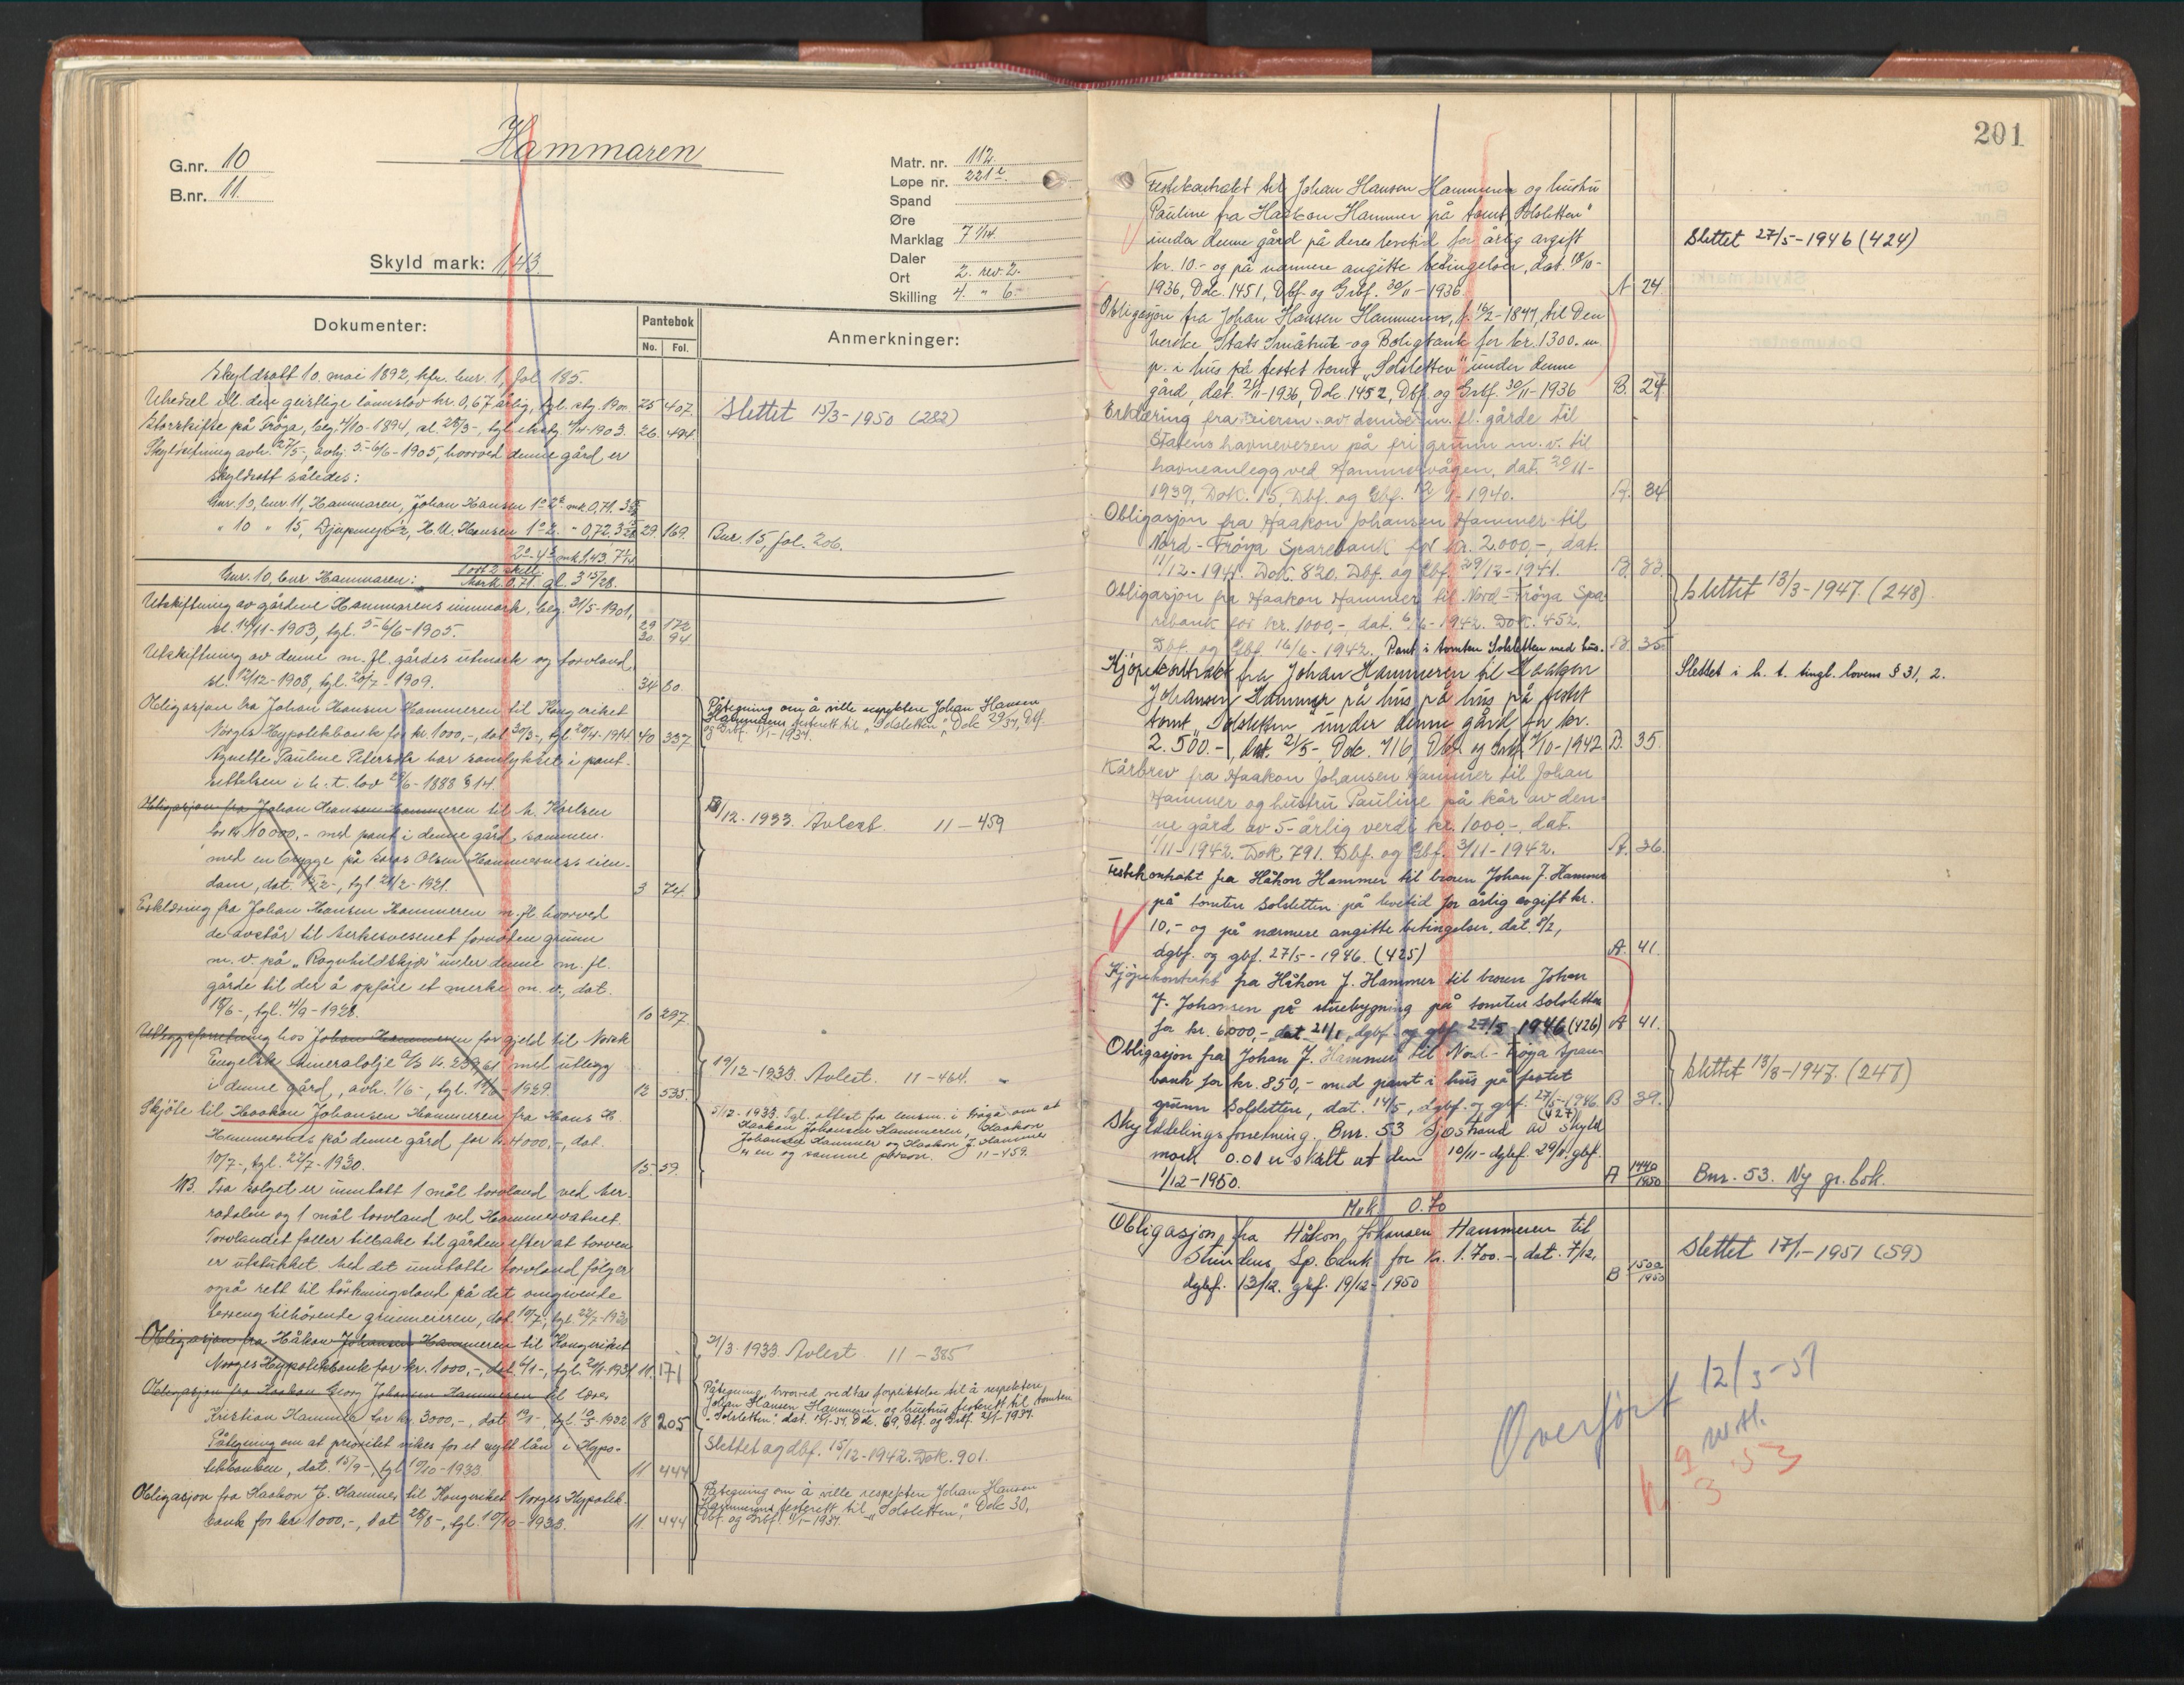 Hammaren
G.nr. 10
B.nr. 11.
Skyld mark: 1,43
Matr. nr. 112.
Løpe nr. 221 c.
Spand
Øre
Marklag 7 1/14.
Daler
Ort 2. rev. 2.
Skilling 4. " 6.
Dokumenter:
Pantebok
No. Fol.
Anmerkninger:
Skyldsatt 10. mai 1892, kfr. bnr. 1, fol 185.
Utredsel ill. den geistlige lønnslov kr. 0,67 årlig, tgl. 1900. 25 407.
Storskifte på Frøya, beg. 4/10-1894, sl. 28/3-, tgl. 4/4-1903. 26. 494.
Slettet 15/3-1950 (282)
Skyldseitning avh. 27/5-, avhj. 5-6/6-1905, hvorved denne gård er
skyldsatt således:
Gnr. 10, bnr. 11, Hammaren, Johan Hansen mk 0,71.
" 10 " 15, H. A. Hansen - 0,72. 29. 169.
Bnr. 15, fol. 206.
mk 1,43.
Gnr. 10, bnr Hammaren: 1 ort 2 skill.
Mark. 0,71 gl. 3 15/28.
Utskiftning av gårdene Hammarens innmark, beg. 31/5-1901,
sl. 14/11-1903, tgl. 5-6/6-1905. 29 172
30. 94.
Utskiftning av denne m. fl. gårdes utmark og torvland,
sl. 12/12-1908, tgl. 20/7-1909. 34 80.
Obligasjon fra Johan Hansen Hammeren til Kongeriket
Norges Hypotekbank for kr. 1000,-, dat. 30/3-, tgl. 20/4-1914. 40 337.
Agnette Pauline Petersdtr. har samtykket i pant-
settelsen i h. t. lov 29/6-1888 § 14.
Påtegning om å ville respektere Johan Hansen
Hammerens festerett til "Solsletten", Dok 29/37, Dbf.
og Grbf. 11/1-1937.
Obligasjon fra Johan Hansen Hammeren til h. Karlsen
for kr. 10 000,- med pant i denne gård, sammen
med en brygge på Olsen Hammernes's eien-
dom, dat. 15/2-, tgl 21/2-1921. 3 74.
/12-1933. Avlest. 11-459
Erklæring fra Johan Hansen Hammeren m. fl. hvorved
de avstår til merkesvesenet fornøden grunn
m. v. på "Ragnhildskjær" under denne m. fl.
gårde til der å opføre et merke m. v., dat.
18/6-, tgl. 4/9-1928. 10 297.
Utleggsforretning hos Johan Hammeren for gjeld til Norsk
Engelsk Mineralolje A/S kr. 239,61 med utlegg
i denne gård, avh. 1/6-, tgl. 19/6-1929. 12 535.
19/12-1933. Avlest. 11-464.
Skjøte til Haakon Johansen Hammeren fra Hans H.
Hammernes på denne gård, for kr. 4000,-, dat.
10/7-, tgl. 22/7-1930. 15. 59.
5/12-1933. Tgl. attest fra lensm. i Frøya om at
Haakon Johansen Hammeren, Haakon
Johansen Hammer og Haakon J. Hammer
er en og samme person. 11-459.
NB. Fra salget er unntatt 1 mål torvland ved
og 1 mål torvland ved Hammervatnet.
Torvlandet faller tilbake til gården efter at torven
er utstukket. Med det unntatte torvland følger
også rett til tørkningsland på det omgivende
terreng tilhørende grunneieren, dat. 10/7-, tgl. 22/7-1930
Obligasjon fra Håkon Johansen Hammeren til Kongeriket
Norges Hypotekbank for kr. 1000,-, dat. 6/1-, tgl. 20/1-1931. 11. 171
31/3-1933. Avlest. 11-385
Obligasjon fra Haakon Georg Johansen Hammeren til lærer
Kristian Hammer for kr. 3000,-, dat. -, tgl. 10/3-1932 18 205
Påtegning, hvorved vedtas forpliktelse til å respektere
Johan Hansen Hammeren og hustrus festerett til tomten
"Solsletten". dat. -37. Dok. 69, Dbf. og Grbf. -1937.
Påtegning om at prioritet vikes for et nytt lån i Hypo-
tekbanken, dat. 15/9-, tgl. 10/10-1933. 11 444
Slettet ag dbf. 15/12-1942. Dok. 901.
Obligasjon fra Haakon J. Hammer til Kongeriket Norges Hypotek-
bank for kr. 1000,-, dat. 28/8-, tgl. 10/10-1933. 11. 444
Påtegning om å ville respektere Johan Hansen
Hammerens festerett til "Solsletten", Dok 30,
Dbf. og Grbf. 11/1-1937.
201
Festekontrakt til Johan Hansen Hammeren og hustru
Pauline fra Haakon Hammer på tomt "Solsletten"
under denne gård på deres levetid for årlig avgift
kr. 10.- og på nærmere angitte betingelser, dat. 10/10-
1936, Dok. 1451, Dbf. og Grbf. 30/11-1936. A 24.
Slettet 27/5-1946 (424)
Obligasjon fra Johan Hansen Hammeren, f. 16/2-1847, til Den
Norske Stats Småbruk- og Boligbank for kr. 1300.- m.
p. i hus på festet tomt "Solsletten" under denne
gård, dat. 21/11-1936, Dok. 1452, Dbf. og Grbf. 30/11-1936 B. 24.
Erklæring fra eieren av denne m. fl. gårde til
Statens havnevesen på fri grunn m. v. til
havneanlegg ved Hammervågen, dat. 20/11-
1939, Dok. 15, Dbf. og Gbf. 12/1-1940. A. 34.
Obligasjon fra Haakon Johansen Hammer til
Nord-Frøya Sparebank for kr. 2.000,-, dat.
11/12-1941. Dok. 820. Dbf. og Gbf. 29/12-1941. B. 33.
Obligasjon fra Haakon Hammer til Nord-Frøya Spa-
rebank for kr. 1000,-, dat. 6/6-1942. Dok. 452.
Dbf. og Gbf. 16/6-1942. Pant i tomten Solsletten med hus. B. 35.
Slettet 13/3-1947. (248)
Kjøpekontrakt fra Johan Hammeren til Haakon
Johansen Hammer på hus på hus på festet
tomt "Solsletten" under denne gård for kr.
2.500.-, dat. 21/5-, Dok. 716, Dbf. og Grbf. 7/10-1942 B. 35.
Slettet i h. t. tingl. lovens § 31, 2.
Kårbrev fra Haakon Johansen Hammer til Johan
Hammer og hustru Pauline på kår av den-
ne gård av 5-årlig verdi kr. 1000,-, dat.
1/11-1942. Dok. 791. Dbf. og Gbf. 3/11-1942. A. 36.
Festekontrakt fra Håkon Hammer til broren Johan J. Hammer
på tomten Solsletten på levetid for årlig avgift kr.
10,- og på nærmere angitte betingelser, dat. 8/2,
dgbf. og gbf. 27/5-1946. (425) A. 41.
Kjøpekontrakt fra Håkon J. Hammer til broren Johan
J. Johansen på stuebygning på tomten Solsletten
for kr. 6000,- dat 21/1, dgbf. og gbf. 27/5 1946 (426) A 41.
Obligasjon fra Johan J. Hammer til Nord-Frøya Spare-
bank for kr. 850,- med pant i hus på festet
grunn Solsletten, dat. 14/5, dgbf. og gbf. 27/5-1946. (427) B 39.
Slettet 13/3-1947. (247)
Skylddelingsforretning. Bnr. 53 Sjøstrand av skyld
mark 0.01 er skilt ut den 10/11- dgbf. 29/11. gbf.
1/12-1950. A 1440/1950
Bnr. 53. Ny gr. bok.
Mrk. 0.70
Obligasjon fra Håkon Johansen Hammeren til
Strindens Sp. bank for kr. 1.700.-, dat. 7/12,
dgbf. 13/12. gbf. 19/12-1950 B 1500/1950
Slettet 17/1-1951 (59)
Overført 12/3-51